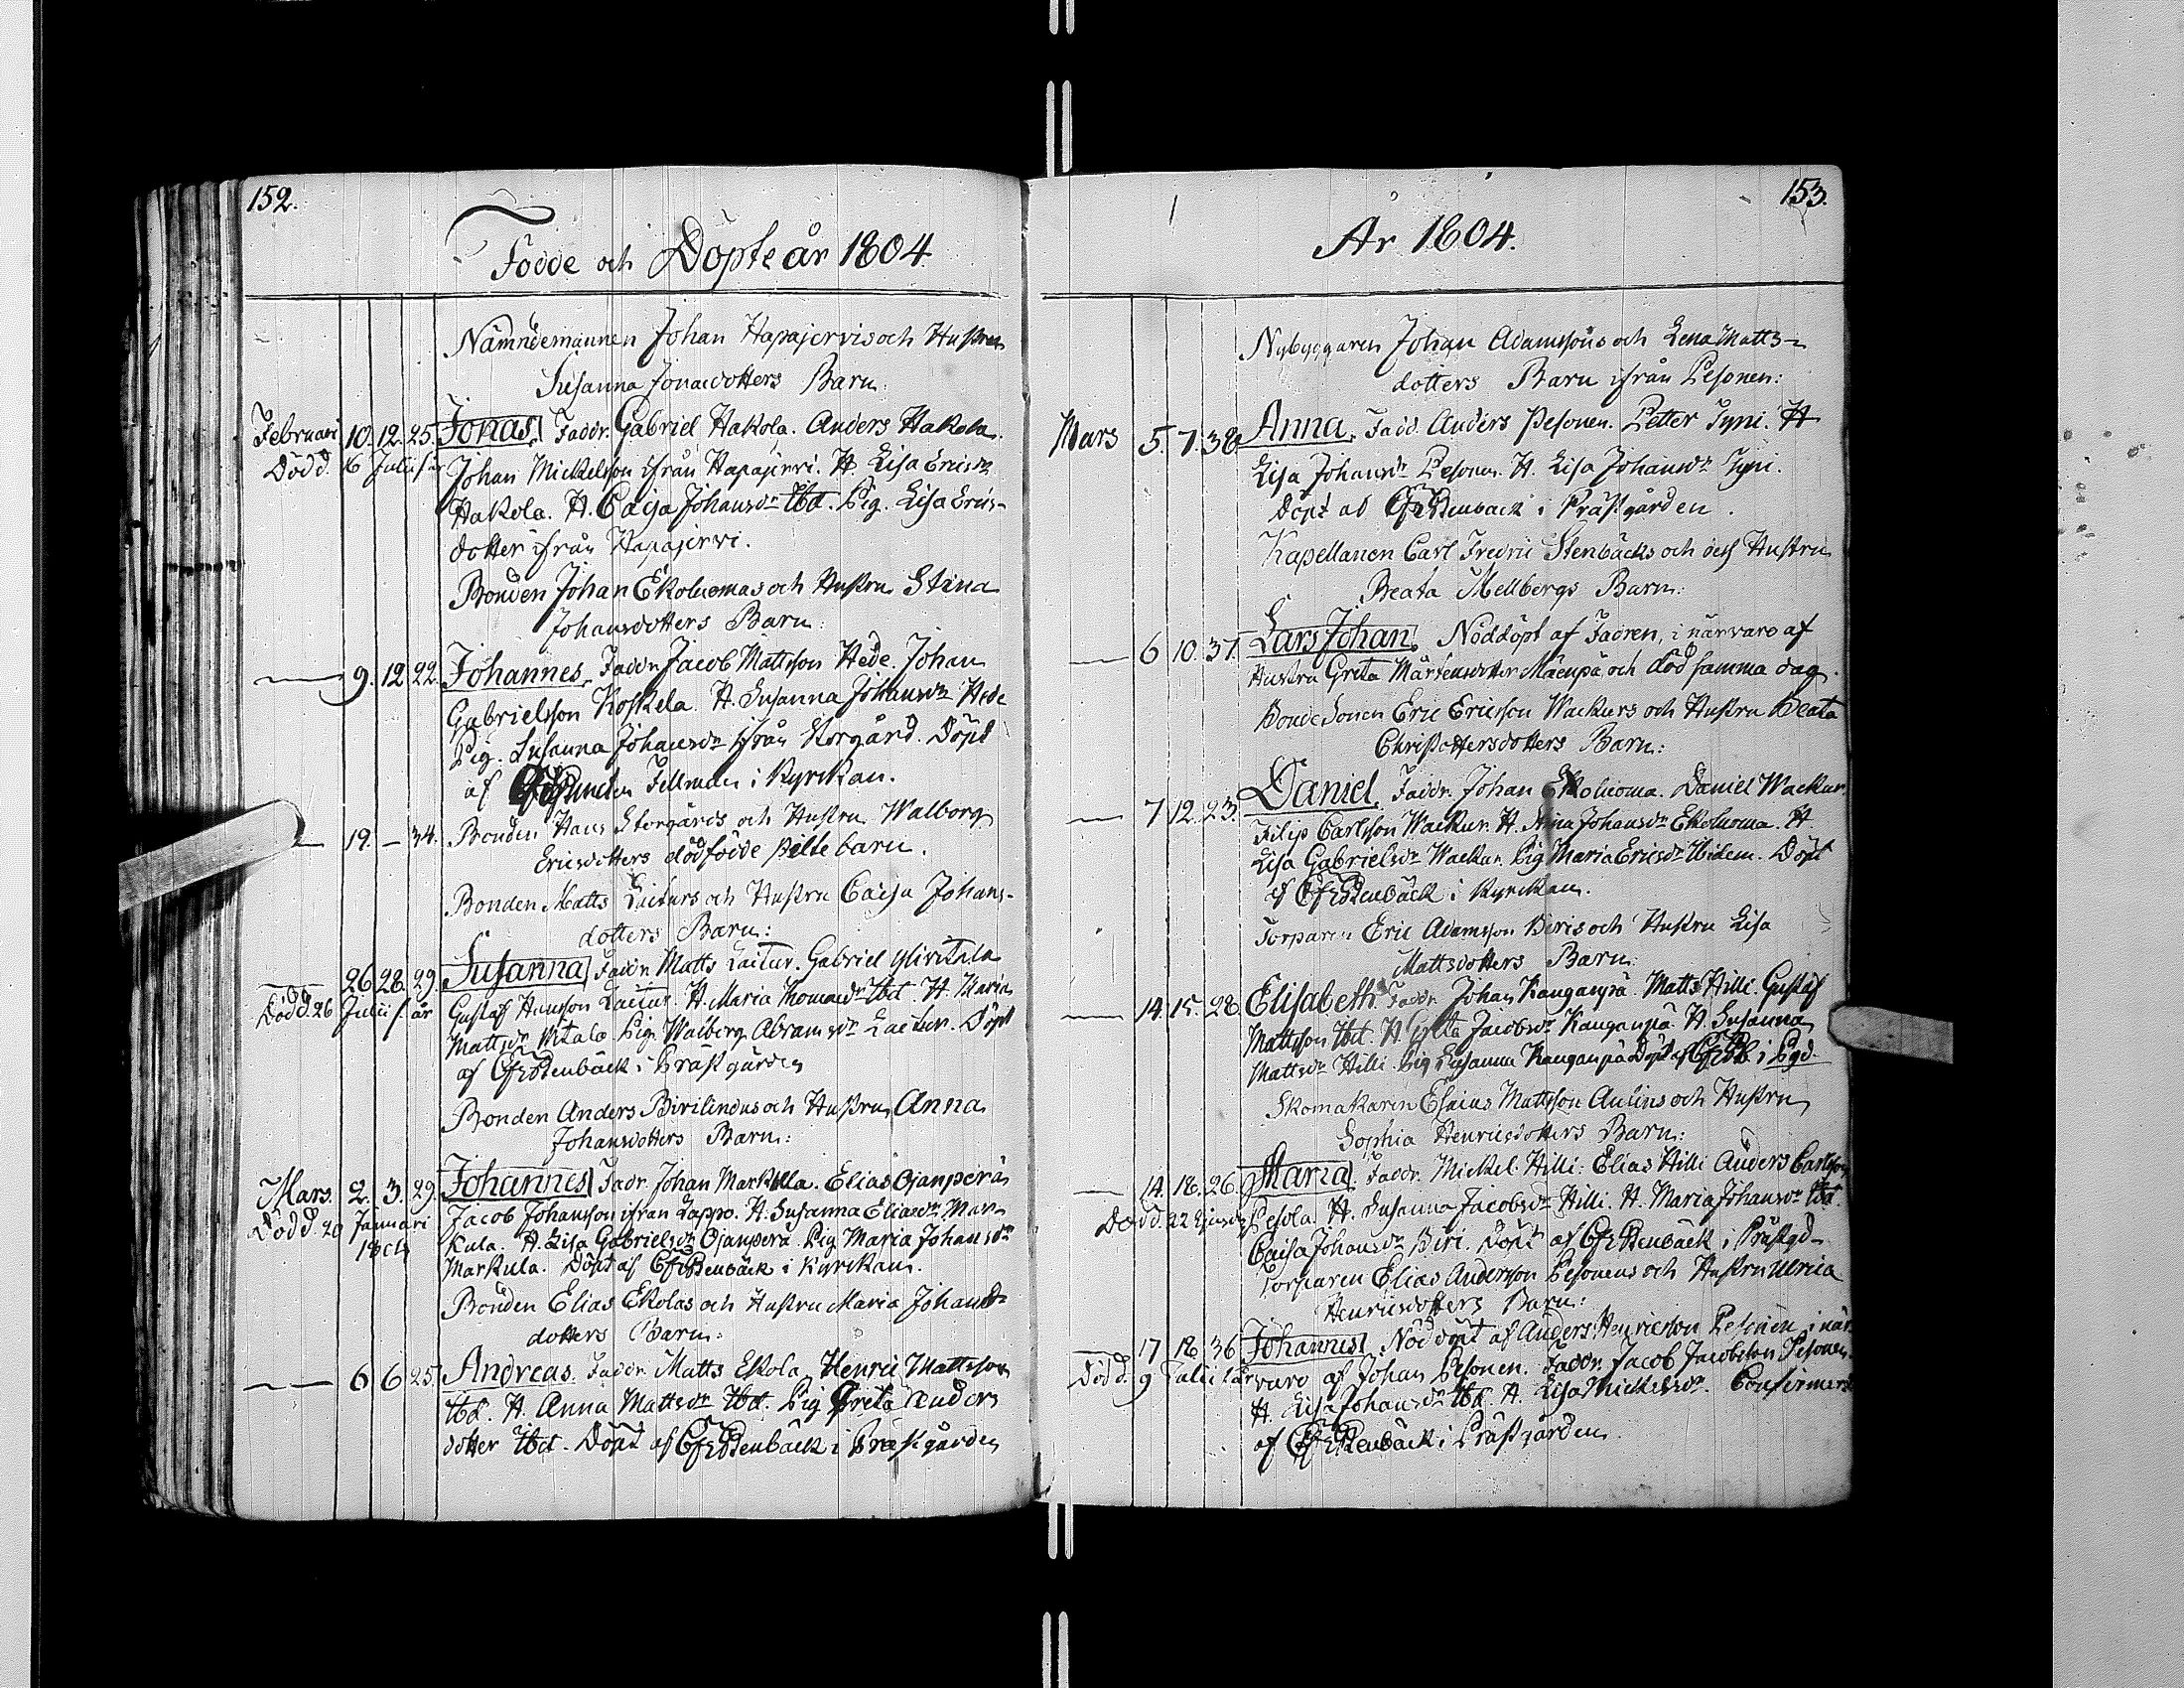 152.
Födde och Döpte år 1804
Nämndemannen Johan Hapajervis och Hustru
Susanna Jonaedotters Barn:
Februari 10. 12. 25. Jonas. Faddr. Gabriel Hakola. Anders Hakola.
Död d. 16 Julii s. år Johan Mickelsson ifrån Hapajervi. H. Lisa Ericsdr
Hakola. H. Caisa Johansdr Ibd. Pig. Lisa Erics-
dotter ifrån Hapajervi.
Bonden Johan Ekoluomas och Hustru Stina
Johansdotters Barn:
— 9. 12 22. Johannes. Faddr. Jacob Mattsson Hede. Johan
Gabrielsson Koskela. H. Susanna Johansdr Hede
Pig. Susanna Johansdr ifrån Norgård. Döpt
af Fellman i Kyrckan.
— 19. — 34. Bonden Hans Storgårds och Hustru Walborg
Ericsdotters dödfödde pillte barn.
Bonden Matts Luckurs och Hustru Caisa Johans-
dotters Barn:
— 26 28. 29. Susanna Faddr. Matts Gabriel Ylivitala
Död d. 26 Julii s. år Gustaf Hansson H. Maria Thomaedr Ibd. H. Maria
Mattsdr Vitala. Pig. Walborg Abramsdr Döpt
af CfrStenbäck i Prästgården
Bonden Anders Birilindus och Hustru Anna
Johansdotters Barn:
Mars. 2. 3. 29. Johannes Fadr. Johan Markkula. Elias Ojanperä
Död d. 20 Januari Jacob Johansson ifrån Lappo. H. Susanna Eliaedr Mar-
kula. H. Lisa Gabrielsdr Ojanperä. Pig Maria Johansdr
Markula. Döpt af CfrStenbäck i Kyrckan.
Bonden Elias Ekolas och Hustru Maria Johans-
dotters Barn:
— — 6 6 25. Andreas. Faddr. Matts Ekola. Henric Mattsson
Ibd. H. Anna Mattsdr Ibd. Pig Greta Anders
dotter Ibd. Döpt af CfrStenbäck i Prästgården
153.
År 1804.
Nybyggaren Johan Adamssons och Lena Matts-
dotters Barn ifrån Pesonen:
Mars 5. 7. 38. Anna. Fadd. Anders Pesonen. Petter Tyni. H
Lisa Johansdr Pesonen. H. Lisa Johansdr Tyni.
Döpt af CfrStenback i Prästgården.
Kapellanen Carl Fredric Stenbäcks och dess Hustru
Beata Mellbergs Barn:
— 6 10. 37. Lars Johan. Nöddöpt af Fadren, i närvaro af
Hustru Greta Mårtensdotter Mäenpä och död samma dag.
Bonde Sonen Eric Ericsson Wackurs och Hustru Beata
Christoffersdotters Barn:
— 7 12. 23. Daniel. Faddr. Johan Ekoluoma. Daniel Wackur.
Filip Carlsson Wackur. H. Stina Johansdr Ekoluoma. H
Lisa Gabrielsdr Wackur. Pig Maria Ericsdr Ibidem. Döpt
af CfrStenbäck i Kyrckan.
Torparen Eric Adamsson Biris och Hustru Lisa
Mattsdotters Barn:
— 14. 15. 28 Elisabeth. Faddr. Johan Kangaspä. Matts Hilli. Gustaf
Mattsson Ibd. H. Greta Jacobsdr Kangaspä. H. Susanna
Mattsdr Hilli. Pig Susanna Kangaspä Döpt af i Pgd.
Skomakaren Esaias Mattsson Aulins och Hustru
Sophia Henricsdotters Barn:
— 14. 18. 26. Maria. Faddr. Mickel Hilli. Elias Hilli Anders Carlsson
Död d. 22 Pesola. H. Susanna Jacobsdr Hilli. H. Maria Johansdr Ibd.
Caisa Johansdr Biri. Döpt af CfrStenbäck i Prästgd
Torparen Elias Andersson Pesonens och Hustru Ulrica
Henricsdotters Barn:
17 18 36 Johannes. Nöddöpt af Anders Henricsson Pesonen, i när
Död d. 9 Julii s. år varo af Johan Pesonen. Faddr. Jacob Jacobsson Pesonen.
H. Lisa Johansdr Ibd. H. Lisa Mickelsdr. Confirmerd
af CfrStenbäck i Prästgården.